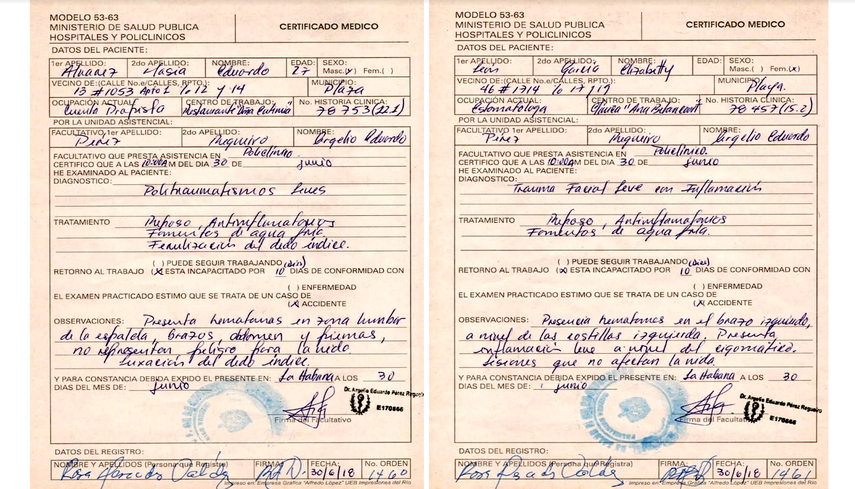 MODELO 53-63
MINISTERIO DE SALUD PUBLICA
HOSPITALES Y POLICLINICOS
CERTIFICADO MEDICO
DATOS DEL PACIENTE:
1er APELLIDO: 2do APELLIDO: NOMBRE: EDAD: SEXO:
Alvarez Eduardo 27 Masc.(x) Fem.( )
VECINO DE:(CALLE No.e/CALLES, RPTO.): MUNICIPIO:
13 #1053 Apto 1 e/ 12 y 14 Plaza
OCUPACION ACTUAL: CENTRO DE TRABAJO: No. HISTORIA CLINICA:
Cuenta Propista Restaurante 78753 (22.1)
POR LA UNIDAD ASISTENCIAL:
FACULTATIVO 1er APELLIDO: 2do APELLIDO: NOMBRE:
Pérez Eduardo
FACULTATIVO QUE PRESTA ASISTENCIA EN Policlínico.
CERTIFICO QUE A LAS 10:00A M DEL DIA 30 DE junio
HE EXAMINADO AL PACIENTE:
DIAGNOSTICO:
Politraumatismos Leves
TRATAMIENTO Reposo, Antinflamatorios
Fomentos de agua fría.
Ferulización del dedo índice.
( ) PUEDE SEGUIR TRABAJANDO (días)
RETORNO AL TRABAJO (x) ESTA INCAPACITADO POR 10 DIAS DE CONFORMIDAD CON
( ) ENFERMEDAD
EL EXAMEN PRACTICADO ESTIMO QUE SE TRATA DE UN CASO DE
(x) ACCIDENTE
OBSERVACIONES: Presenta hematomas en zona lumbar
de la espalda, brazos, abdomen y piernas,
no representan peligro para la vida
Luxación del dedo índice.
Y PARA CONSTANCIA DEBIDA EXPIDO EL PRESENTE EN: La Habana A LOS 30
DIAS DEL MES DE: junio
Dr. Angelio Eduardo Pérez
E170866
Firma del Facultativo
DATOS DEL REGISTRO:
NOMBRE Y APELLIDOS (Persona que Registra) FIRMA: FECHA: No. ORDEN
Rosa Valdés 30/6/18 1460
Impreso en: Empresa Gráfica "Alfredo López" UEB Impresiones del Río
MODELO 53-63
MINISTERIO DE SALUD PUBLICA
HOSPITALES Y POLICLINICOS
CERTIFICADO MEDICO
DATOS DEL PACIENTE:
1er APELLIDO: 2do APELLIDO: NOMBRE: EDAD: SEXO:
León García Masc.( ) Fem.(x)
VECINO DE:(CALLE No.e/CALLES, RPTO.): MUNICIPIO:
46 #1714 e/ 17 y 19 Playa.
OCUPACION ACTUAL: CENTRO DE TRABAJO: No. HISTORIA CLINICA:
Estomatóloga Clínica "Ana Betancourt" 78457 (15.2)
POR LA UNIDAD ASISTENCIAL:
FACULTATIVO 1er APELLIDO: 2do APELLIDO: NOMBRE:
Pérez Eduardo
FACULTATIVO QUE PRESTA ASISTENCIA EN Policlínico.
CERTIFICO QUE A LAS 10:00A M DEL DIA 30 DE junio
HE EXAMINADO AL PACIENTE:
DIAGNOSTICO:
Trauma Facial Leve con Inflamación
TRATAMIENTO Reposo, Antinflamatorios
Fomentos de agua fría.
( ) PUEDE SEGUIR TRABAJANDO (días)
RETORNO AL TRABAJO (x) ESTA INCAPACITADO POR 10 DIAS DE CONFORMIDAD CON
( ) ENFERMEDAD
EL EXAMEN PRACTICADO ESTIMO QUE SE TRATA DE UN CASO DE
(x) ACCIDENTE
OBSERVACIONES: Presencia hematomas en el brazo izquierdo,
a nivel de las costillas izquierda. Presenta
inflamación leve a nivel del cigomático.
Lesiones que no afectan la vida
Y PARA CONSTANCIA DEBIDA EXPIDO EL PRESENTE EN: La Habana A LOS 30
DIAS DEL MES DE: junio
Dr. Angelio Eduardo Pérez
E170866
Firma del Facultativo
DATOS DEL REGISTRO:
NOMBRE Y APELLIDOS (Persona que Registra) FIRMA: FECHA: No. ORDEN
Rosa Valdés 30/6/18 1461
Impreso en: Empresa Gráfica "Alfredo López" UEB Impresiones del Río